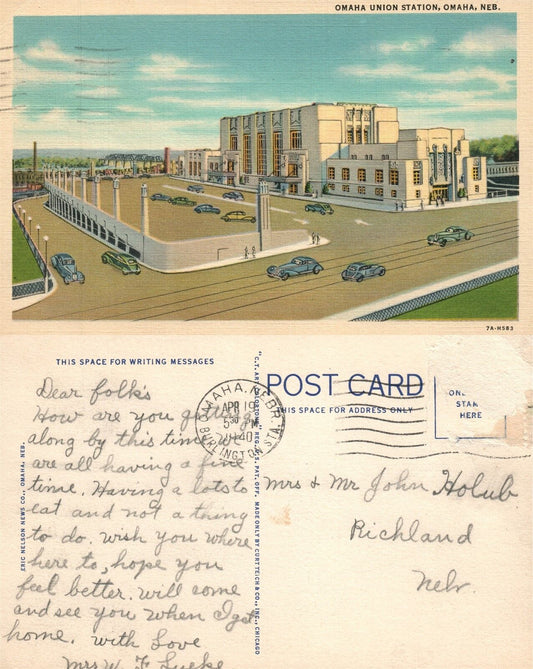 OMAHA UNION STATION, OMAHA, NEB.
7A-H583
THIS SPACE FOR WRITING MESSAGES
Dear folk's
How are you getting
along by this time. We
are all having a fine
time. Having a lots to
eat and not a thing
to do. wish you where
here to, hope you
feel better. will come
and see you when I get
home. with Love
Mrs W. F.
ERIC NELSON NEWS CO., OMAHA, NEB.
"C.T. ART-COLORTONE" REG. U.S. PAT. OFF. MADE ONLY BY CURT TEICH & CO., INC., CHICAGO
OMAHA, NEBR.
APR 19
5 30 PM
1940
BURLINGTON STA.
POST CARD
THIS SPACE FOR ADDRESS ONLY
ONE
STAM
HERE
Mrs & Mr John Holub
Richland
Nebr.